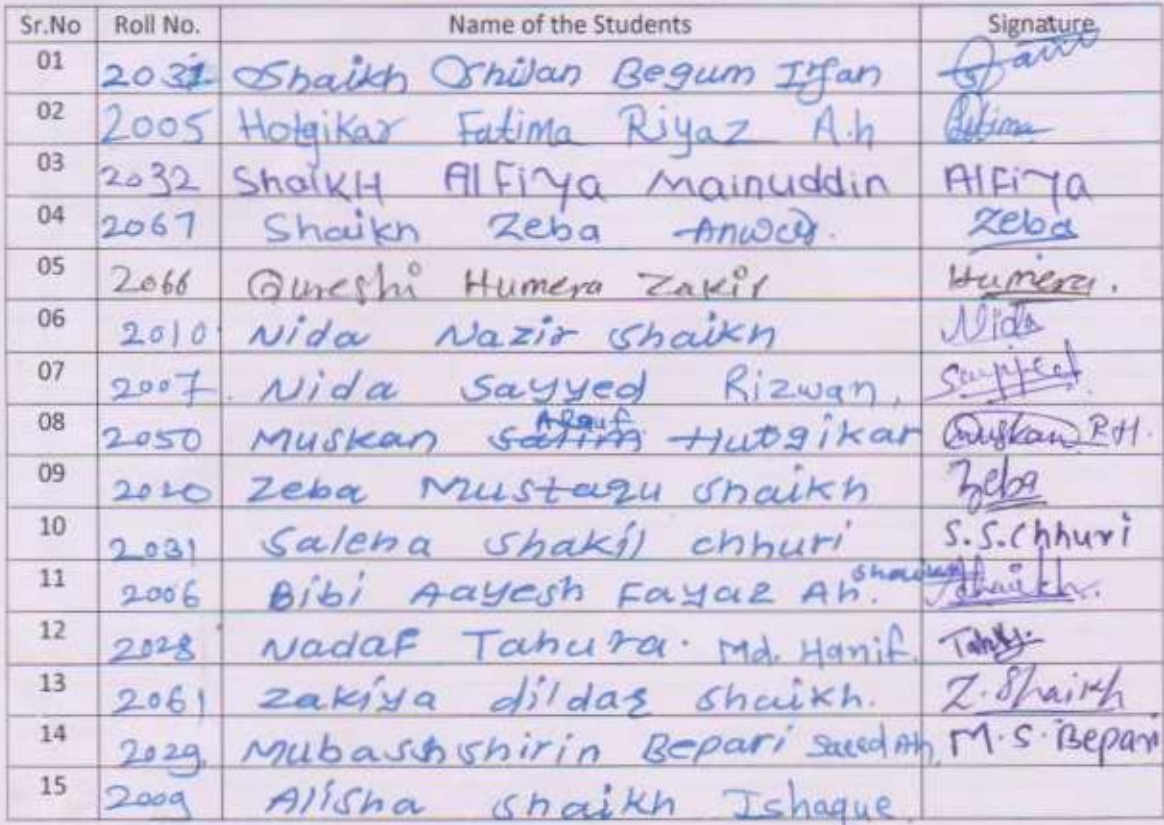 Sr.No Roll No. Name of the Students Signature
01 2031 Shaikh Begum Irfan
02 2005 Hotgikar Fatima Riyaz A.h Fatima
03 2032 ShaikH AlFiya Mainuddin AlFiya
04 2067 Shaikh Zeba Anwar. Zeba
05 2066 Qureshi Humera Zakir Humera.
06 2010 Nida Nazir Shaikh Nida
07 2007. Nida Sayyed Rizwan, Sayyed
08 2050 Muskan A Rauf Hutgikar Muskan R.H.
09 2020 Zeba Mustaqu Shaikh Zeba
10 2031 Salena Shakil chhuri S.S.Chhuri
11 2006 Bibi Aayesh Fayaz Ah. Shaikh Shaikh.
12 2028 Nadaf Tahura. Md. Hanif.
13 2061 Zakiya dildar Shaikh. Z.Shaikh
14 2029. Mubashshirin Bepari Saeed Ah. M.S.Bepari
15 2009 Alisha Shaikh Ishaque.